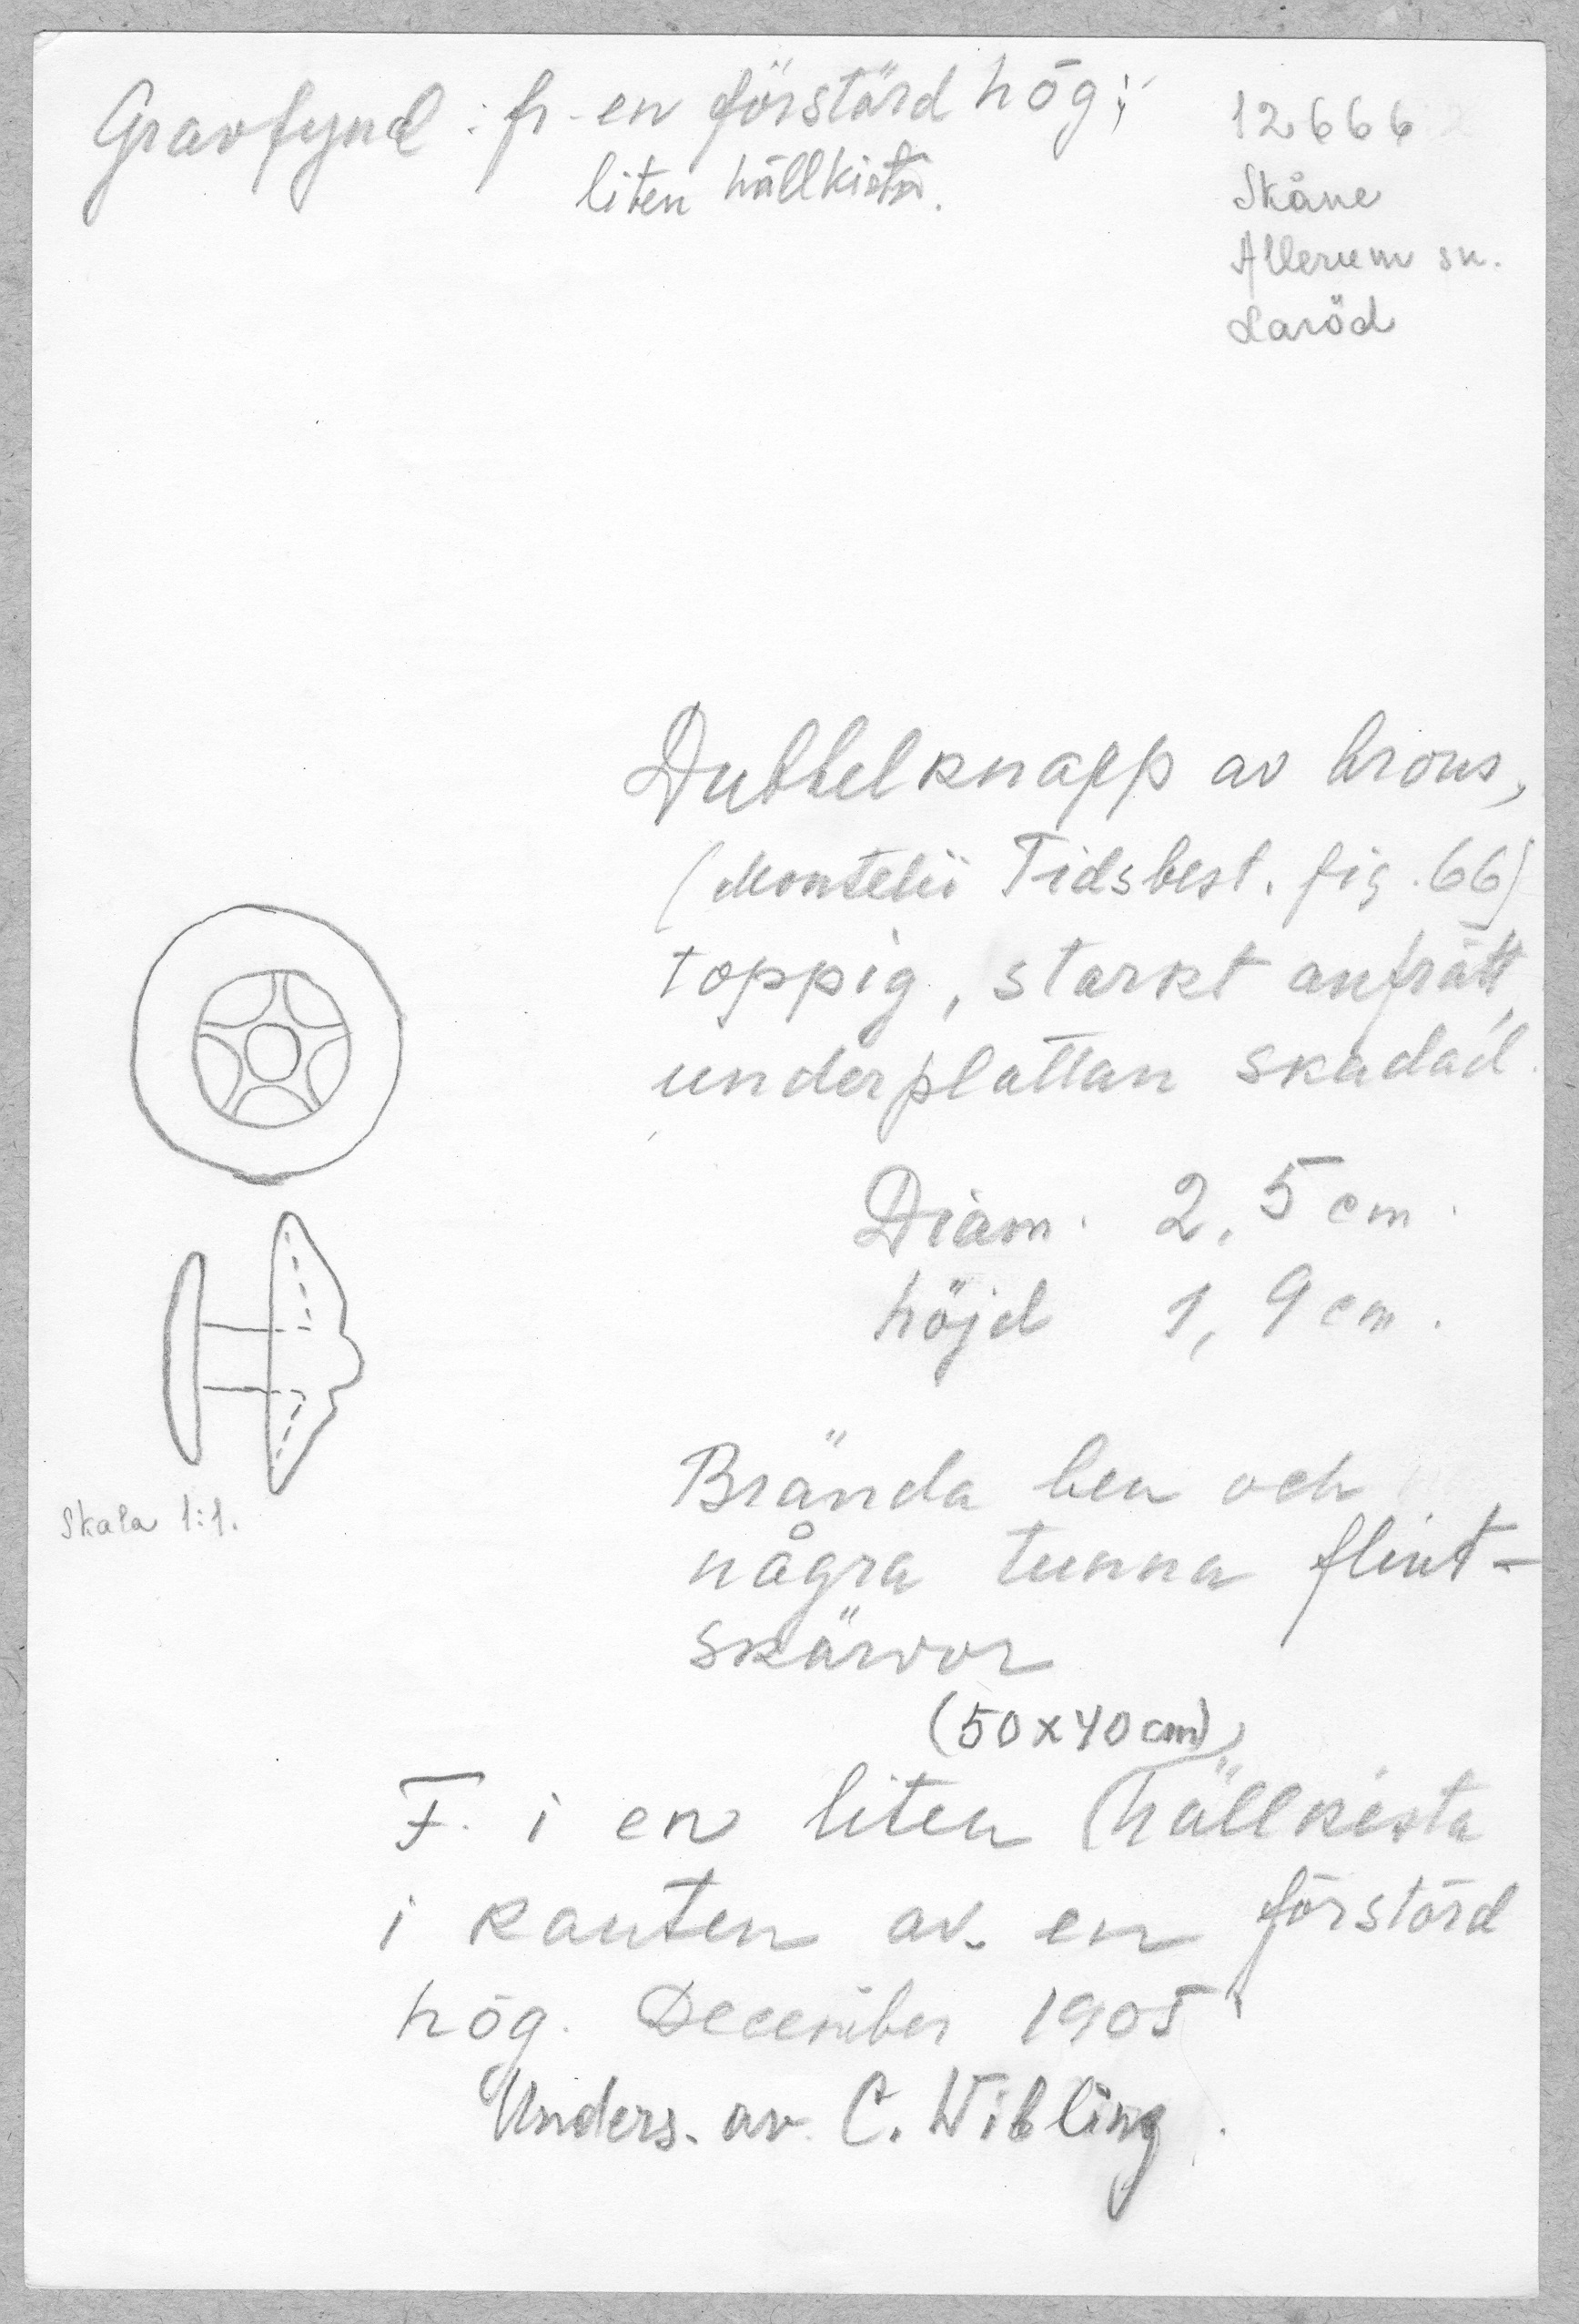 Gravfynd : fr. en förstörd hög;
liten hällkista.
12666
Skåne
Allerum sn.
Laröd
Dubbelknapp av brons,
(Montelii Tidsbest. fig. 66)
toppig, starkt anfrätt,
underplattan skadad.
Diam. 2,5 cm.
höjd 1,9 cm.
Skala 1:1.
Brända ben och
några tunna flint-
skärvor
(50x40 cm)
F. i en liten hällkista
i kanten av en förstörd
hög. December 1905
Unders. av C. Wibling.